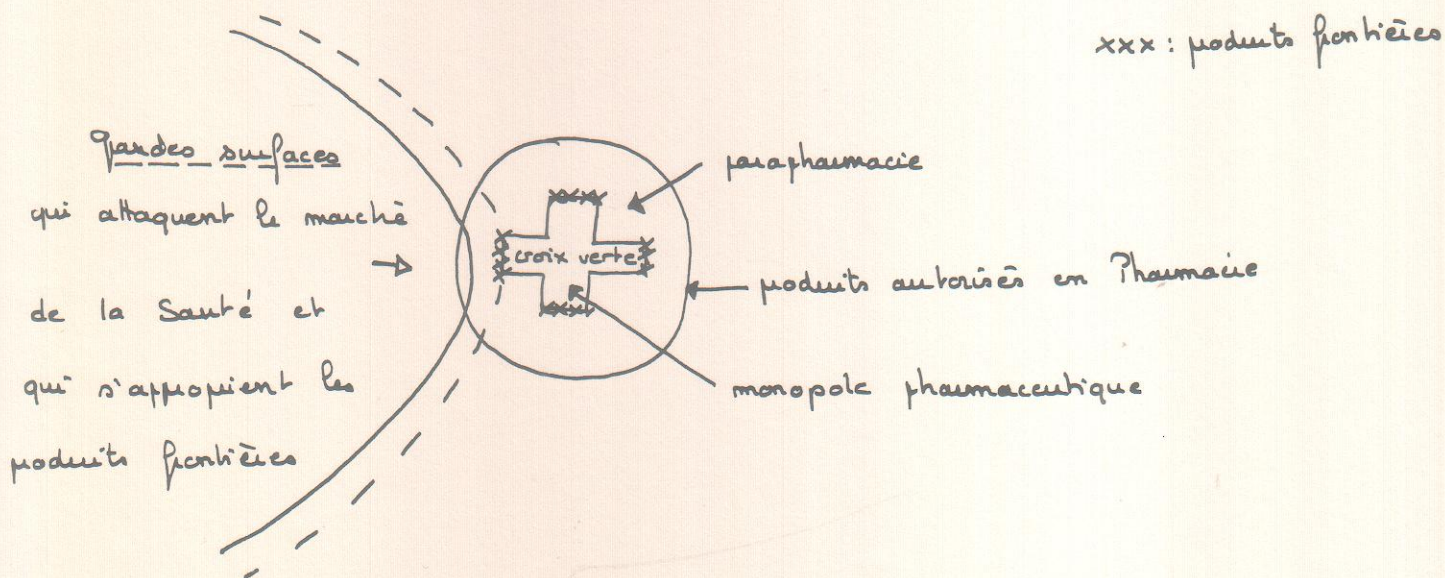 xxx : produits frontières
Grandes surfaces
qui attaquent le marché
de la Santé et
qui s'approprient les
produits frontières
croix verte
parapharmacie
produits autorisés en Pharmacie
monopole pharmaceutique